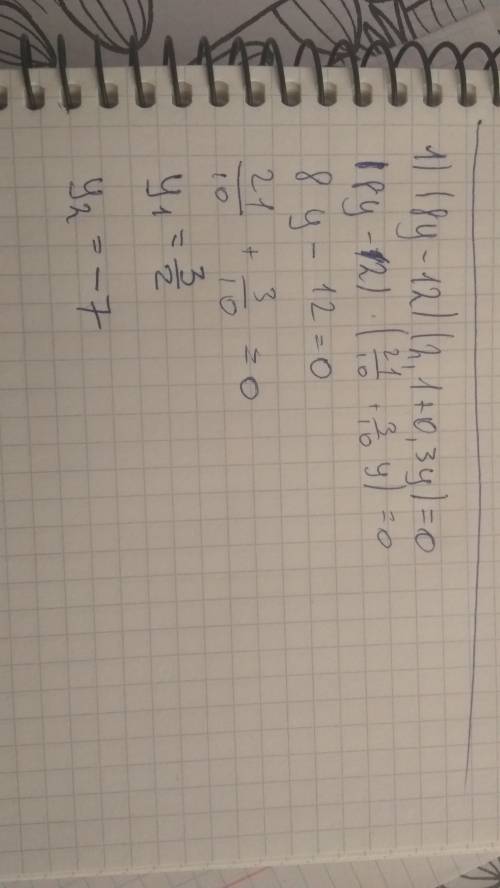 1) (8y-12)(2,1+0,3y)=0
(8y-12)·(21/10+3/10y)=0
8y-12=0
21/10+3/10=0
y₁=3/2
y₂=-7